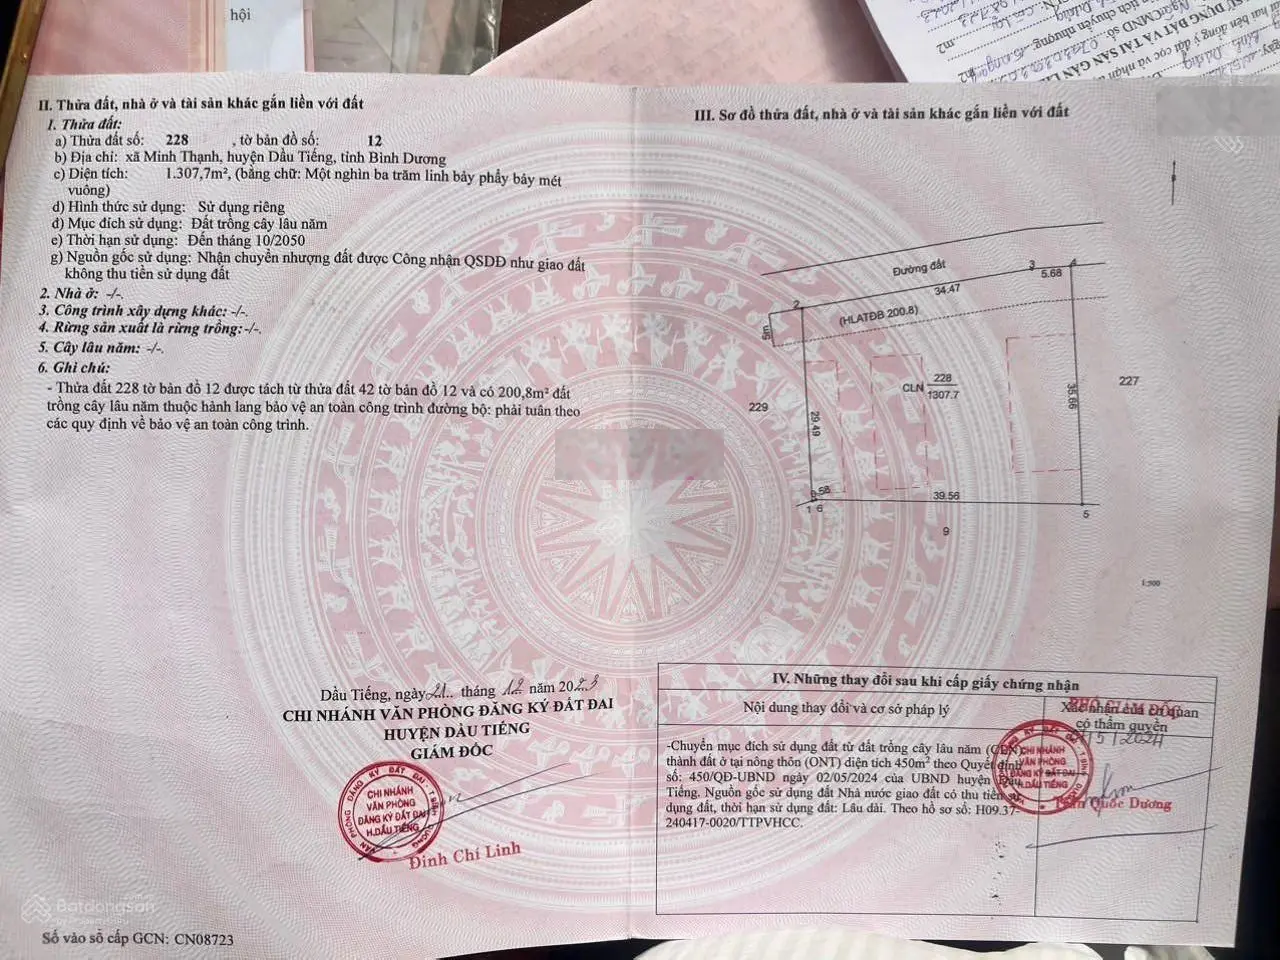 hội
II. Thửa đất, nhà ở và tài sản khác gắn liền với đất
1. Thửa đất:
a) Thửa đất số: 228 , tờ bản đồ số: 12
b) Địa chỉ: xã Minh Thạnh, huyện Dầu Tiếng, tỉnh Bình Dương
c) Diện tích: 1.307,7m², (bằng chữ: Một nghìn ba trăm linh bảy phẩy bảy mét
vuông)
d) Hình thức sử dụng: Sử dụng riêng
đ) Mục đích sử dụng: Đất trồng cây lâu năm
e) Thời hạn sử dụng: Đến tháng 10/2050
g) Nguồn gốc sử dụng: Nhận chuyển nhượng đất được Công nhận QSDĐ như giao đất
không thu tiền sử dụng đất
2. Nhà ở: -/-.
3. Công trình xây dựng khác: -/-.
4. Rừng sản xuất là rừng trồng:-/-.
5. Cây lâu năm: -/-.
6. Ghi chú:
- Thửa đất 228 tờ bản đồ 12 được tách từ thửa đất 42 tờ bản đồ 12 và có 200,8m² đất
trồng cây lâu năm thuộc hành lang bảo vệ an toàn công trình đường bộ: phải tuân theo
các quy định về bảo vệ an toàn công trình.
Dầu Tiếng, ngày 21 tháng 12 năm 2023
CHI NHÁNH VĂN PHÒNG ĐĂNG KÝ ĐẤT ĐAI
HUYỆN DẦU TIẾNG
GIÁM ĐỐC
CHI NHÁNH
VĂN PHÒNG
ĐĂNG KÝ ĐẤT ĐAI
H.DẦU TIẾNG
Đinh Chí Linh
Số vào sổ cấp GCN: CN08723
Batdongsan
III. Sơ đồ thửa đất, nhà ở và tài sản khác gắn liền với đất
Đường đất
3
4
5.68
34.47
2
5m
(HLATĐB 200.8)
CLN 228
1307.7
227
229
29.49
35.66
39.56
1 6
5
9
1:500
IV. Những thay đổi sau khi cấp giấy chứng nhận
Nội dung thay đổi và cơ sở pháp lý
Xác nhận của cơ quan
có thẩm quyền
-Chuyển mục đích sử dụng đất từ đất trồng cây lâu năm (CLN)
thành đất ở tại nông thôn (ONT) diện tích 450m² theo Quyết định
số: 450/QĐ-UBND ngày 02/05/2024 của UBND huyện Dầu
Tiếng. Nguồn gốc sử dụng đất Nhà nước giao đất có thu tiền sử
dụng đất, thời hạn sử dụng đất: Lâu dài. Theo hồ sơ số: H09.37-
240417-0020/TTPVHCC.
CHI NHÁNH
VĂN PHÒNG
ĐĂNG KÝ ĐẤT ĐAI
H.DẦU TIẾNG
Quốc Dương